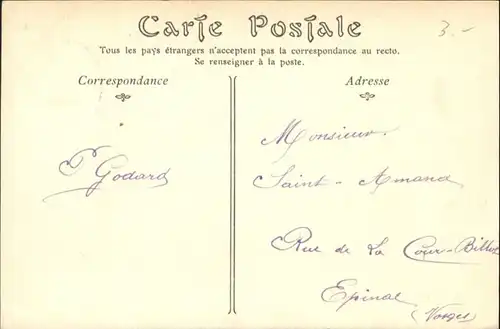 Carte Postale
3.-
Tous les pays étrangers n'acceptent pas la correspondance au recto.
Se renseigner à la poste.
Correspondance
P Godard
Adresse
Monsieur.
Saint-Amand
Rue de La Cour-Billot
Epinal
(Vosges)